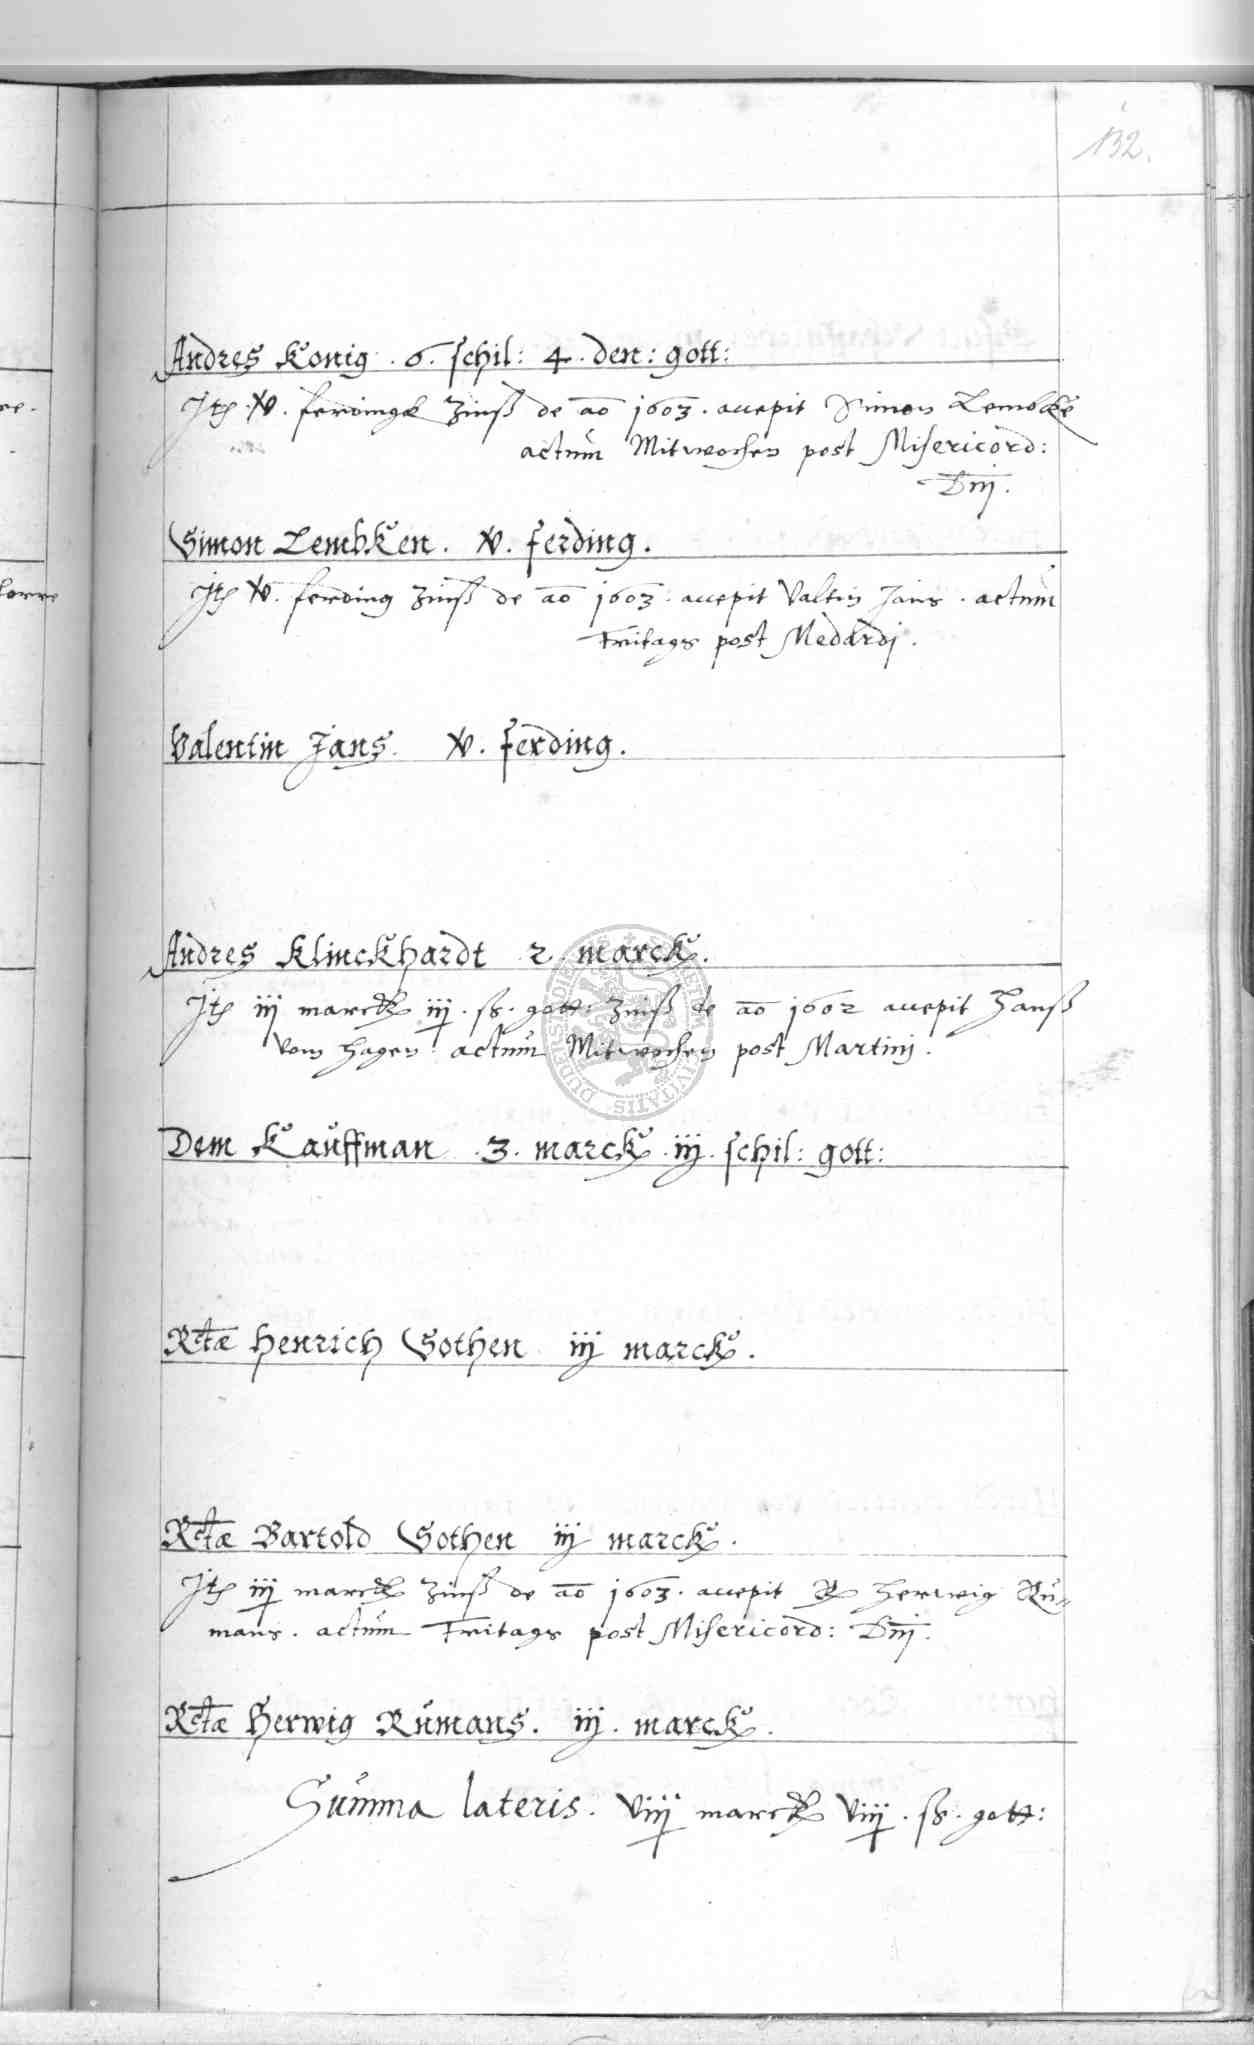 132.
Andres Konig . 6 . schil: 4 . den: gott:
Jtem v . ferdingk Zinß de ao 1603 . accepit Simon Lembcke
actum Mitwochen post Misericord:
Dnj .
Simon Lembken . v . ferding .
Jtem v . ferding Zinß de ao 1603 . accepit Valtin Jans . actum
Fritags post Medardj .
Valentin Jans . v . ferding .
Andres Klinckhardt 2 marck .
Jtem iij marck iij . ß . gott: Zinß de ao 1602 accepit Hanß
vom Hagen . actum Mitwochen post Martinj .
Dem Kauffman . 3 . marck . iij . schil: gott:
Rctæ Henrich Gothen iij marck .
Rctæ Bartold Gothen iij marck .
Jtem iij marck Zinß de ao 1603 . accepit Herwig Ru-
mans . actum Fritags post Misericord: Dnj .
Rctæ Herwig Rumans . iij . marck .
Summa lateris . viij marck viij . ß . gott:
CIVITATIS